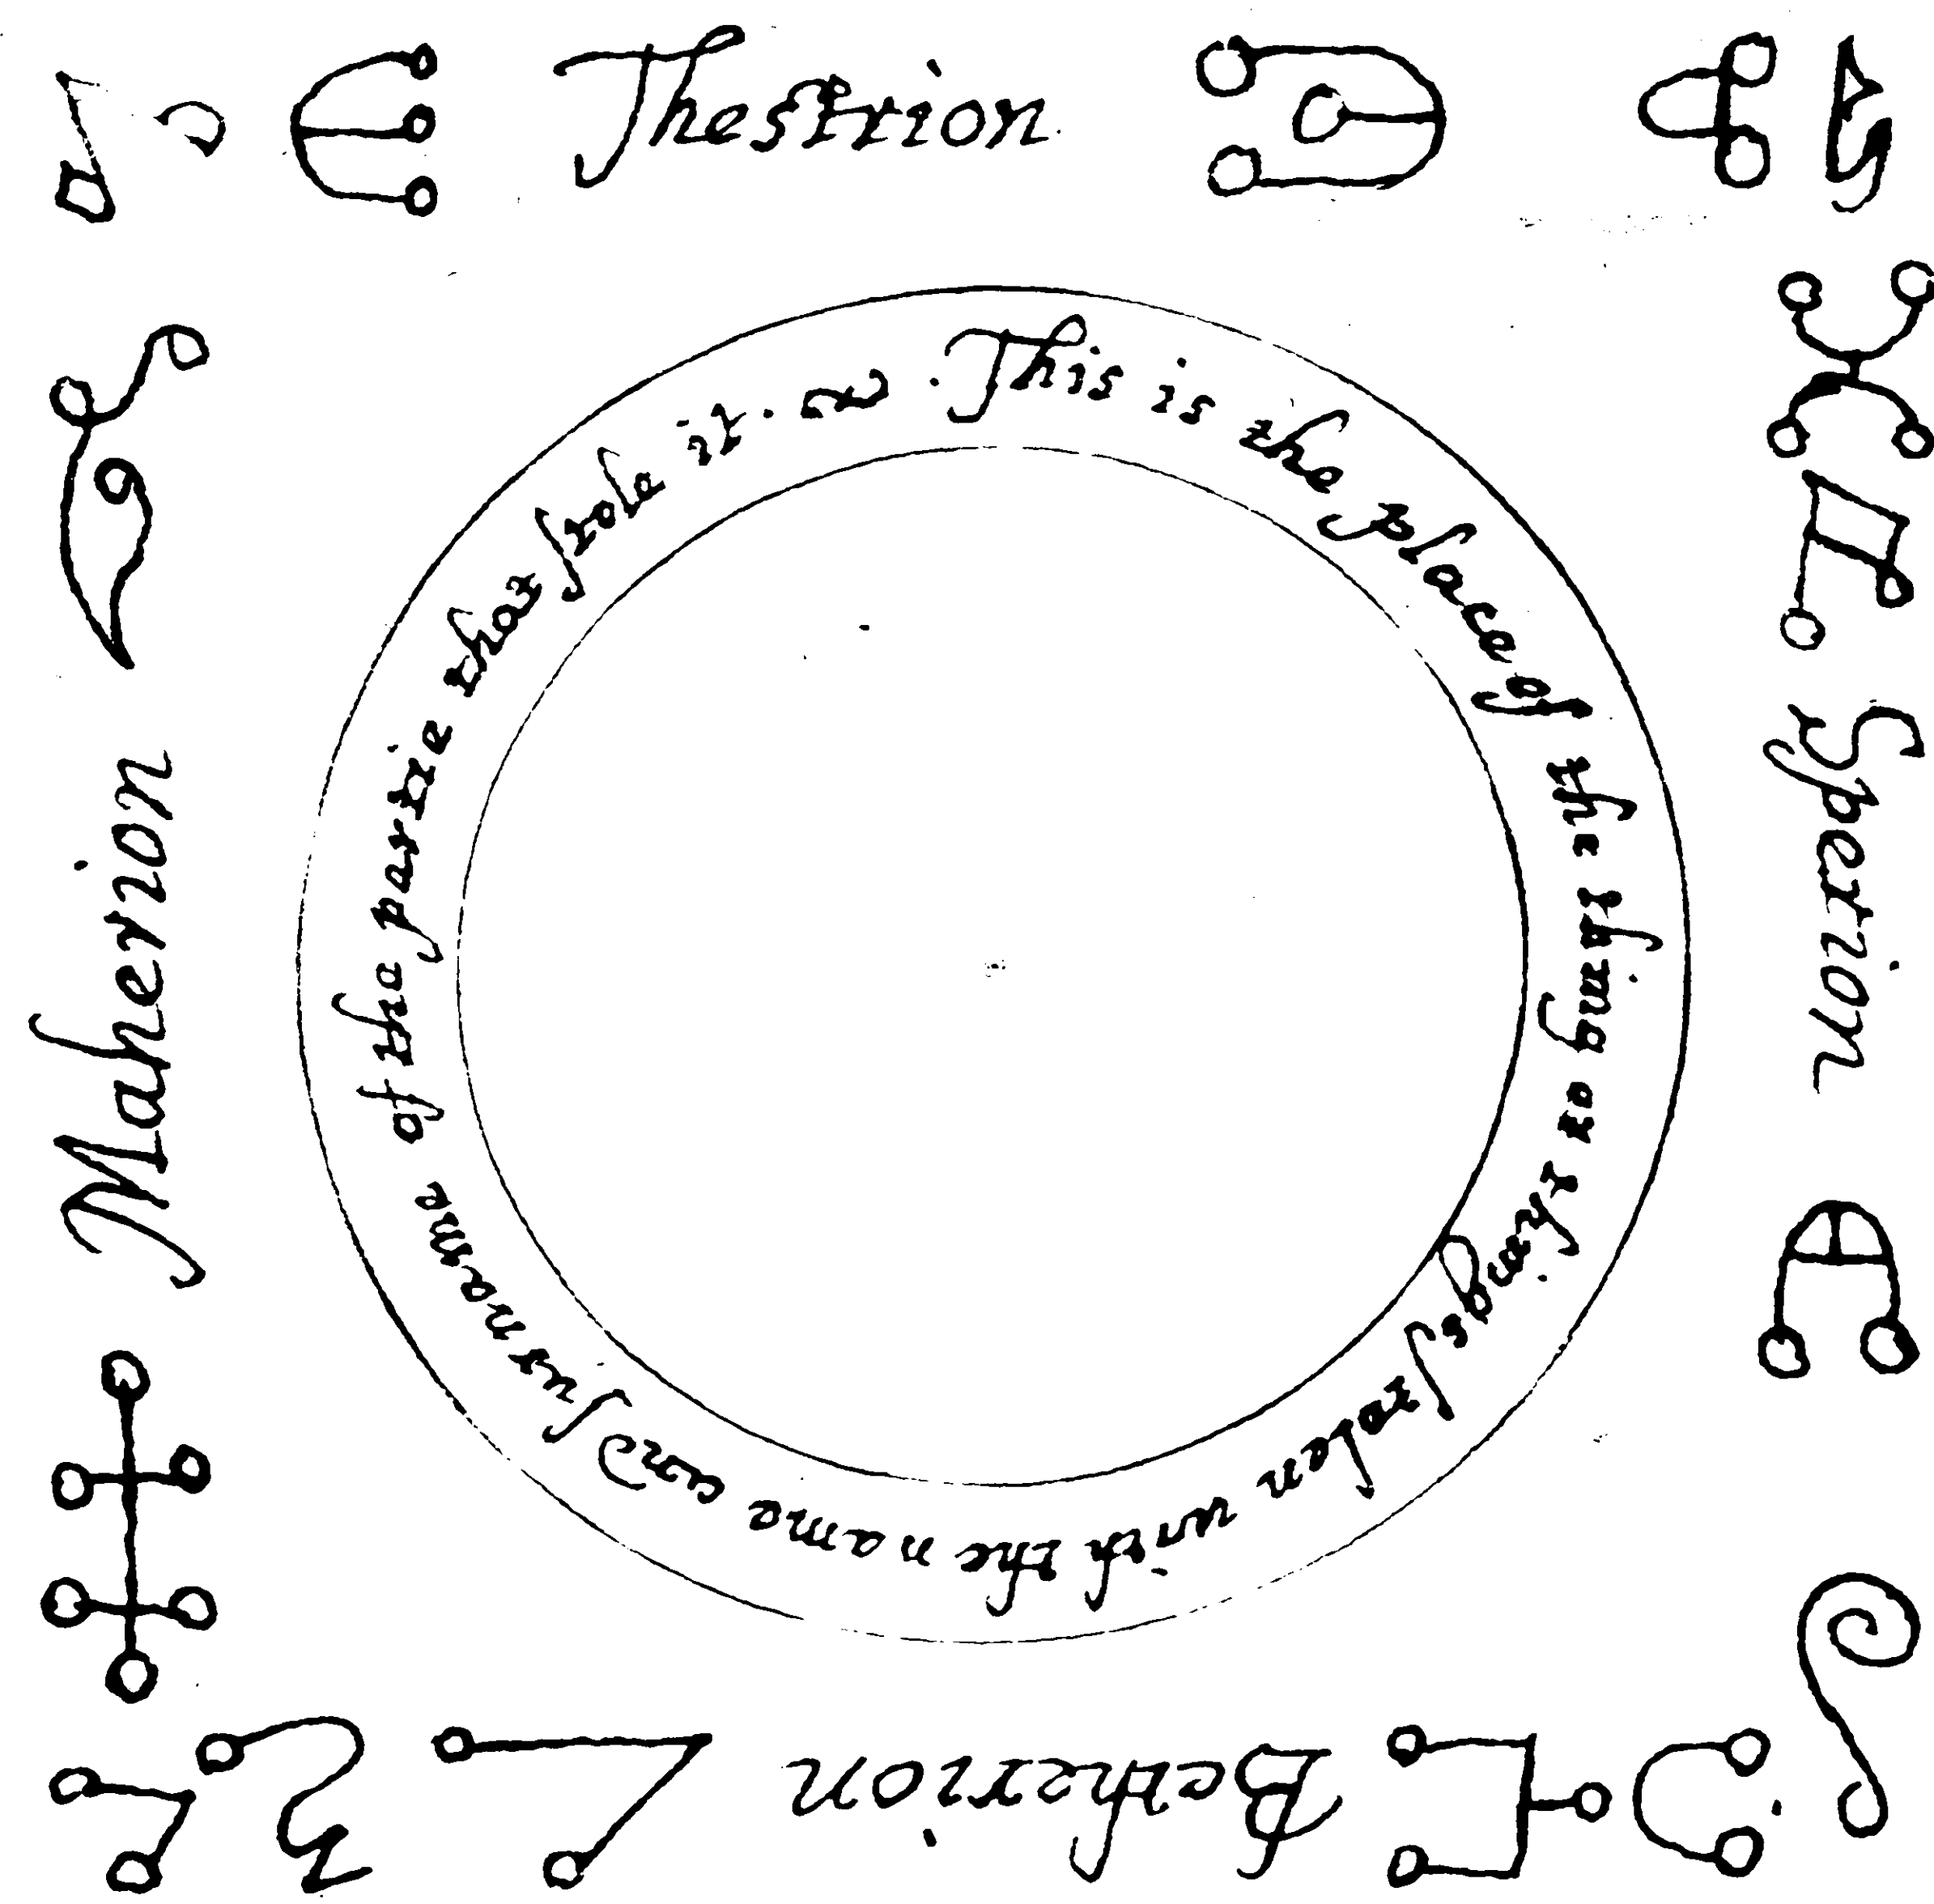 Thestrion.
Sperion
Betherion
Maherion
This is the place of yͤ thing or things stolen with the name and surname of the partie that stole it.